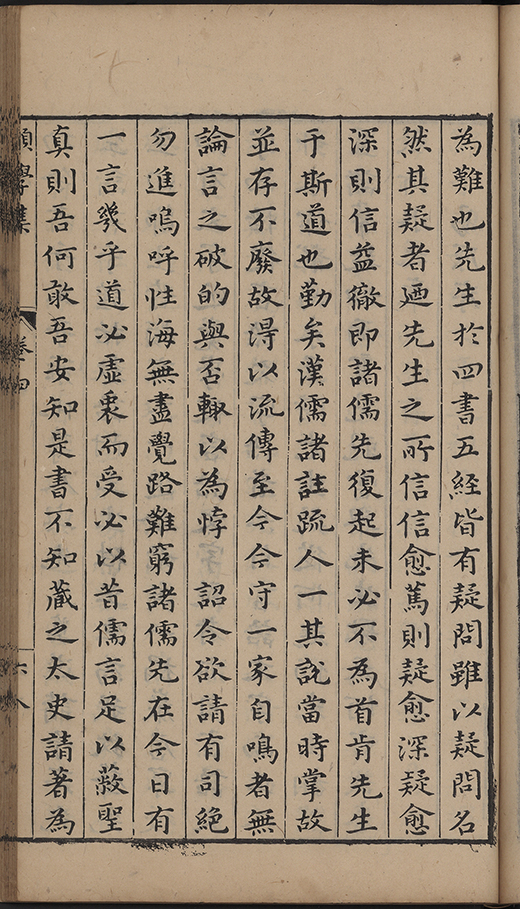 為難也先生於四書五經皆有疑問雖以疑問名
然其疑者廼先生之所信信愈篤則疑愈深疑愈
深則信益徹即諸儒先復起未必不為首肯先生
于斯道也勤矣漢儒諸註疏人一其說當時掌故
並存不廢故得以流傳至今今守一家自鳴者無
論言之破的與否輙以為悖 詔令欲請有司絕
勿進嗚呼性海無盡覺路難窮諸儒先在今日有
一言幾乎道必虛衷而受必以昔儒言足以蔽聖
真則吾何敢吾安知是書不知藏之太史請著為
學集 卷四 六八